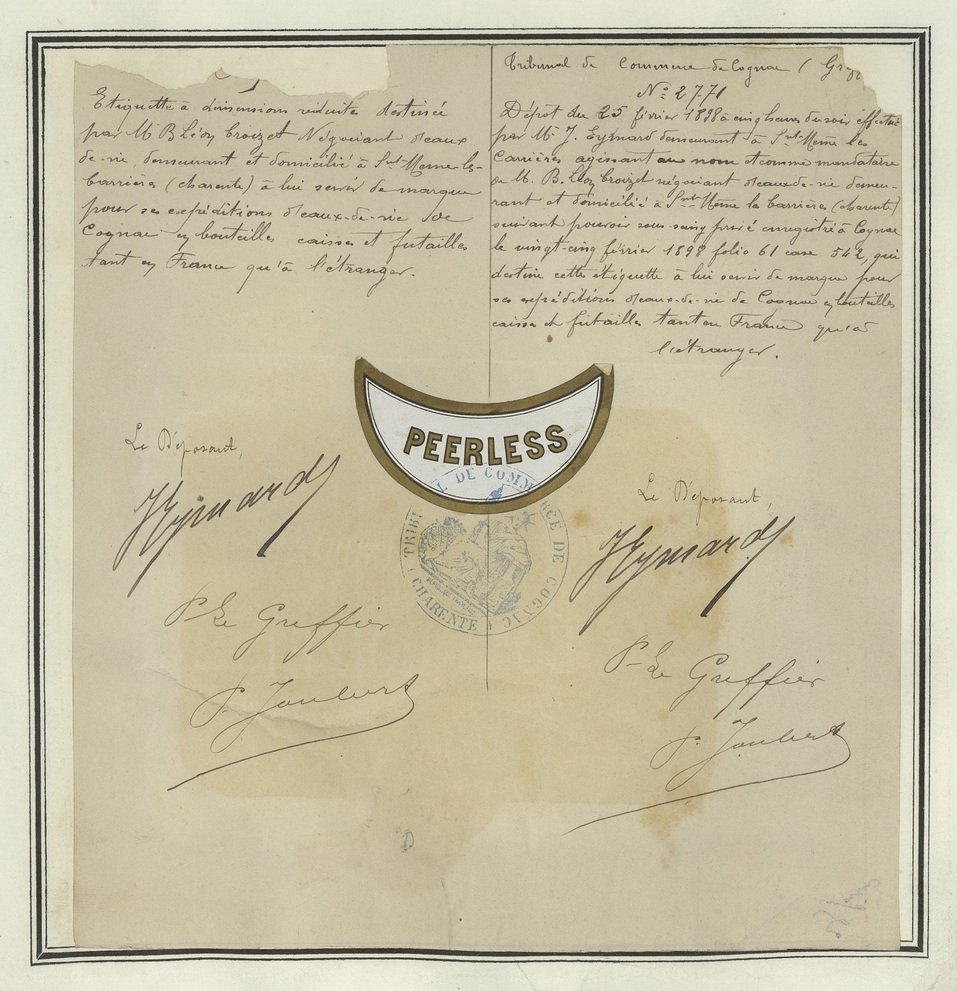 Etiquette à dimensions réduites destinée
par Mr B Léon Croizet Négociant d'eaux
de-vie, demeurant et domicilié à Snt Meme les-
Carrières (charente) à lui servir de marque
pour ses expéditions d'eaux-de-vie de
Cognac en bouteilles caisses et futailles
tant en France qu'à l'étranger.
Tribunal de Commerce de Cognac (
No 2771
Dépôt du 25 février 1898 à cinq heures du soir effectué
par Mr J. Eymard demeurant à Snt Meme les
Carrières agissant au nom et comme mandataire
de M. B. Léon Croizet négociant d'eaux-de-vie demeu-
rant et domicilié à Snt Meme les Carrières (charente)
suivant pouvoir sous-seing privé enregistré à Cognac
le vingt-cinq février 1898 folio 61 case 542, qui
destine cette étiquette à lui servir de marque pour
ses expéditions d'eaux-de-vie de Cognac en bouteilles
caisses et futailles tant en France qu'à
l'étranger.
PEERLESS
TRIBUNAL DE COMMERCE DE COGNAC
(CHARENTE)
Le Déposant,
JEymard
Pr Le Greffier
P. Joubert
Le Déposant,
JEymard
Pr Le Greffier
P. Joubert